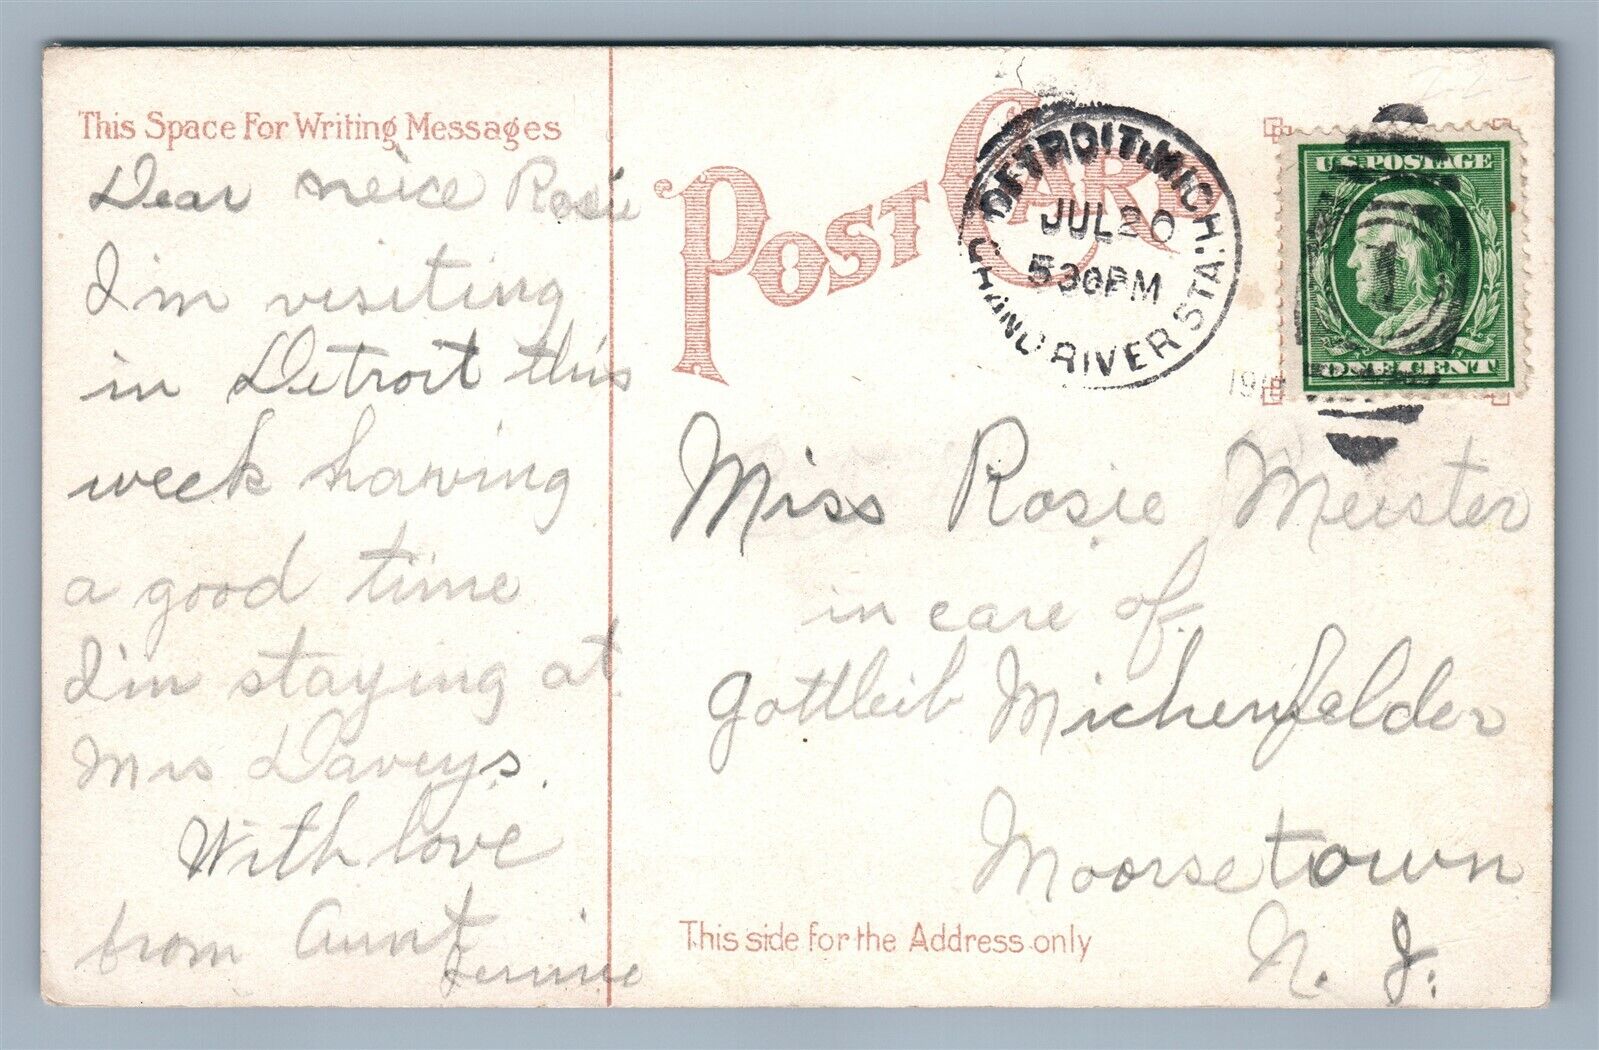 This Space For Writing Messages
Dear neice Rosie
I'm visiting
in Detroit this
week having
a good time
I'm staying at
Mrs Daveys.
With love
from Aunt
Jennie
POST CARD
DETROIT, MICH.
JUL 20
530PM
GRAND RIVER STA.
191
U.S. POSTAGE
1
ONE CENT
Miss Rosie Meister
in care of
Gottleib Michenfelder
Moorsetown
N. J.
This side for the Address only